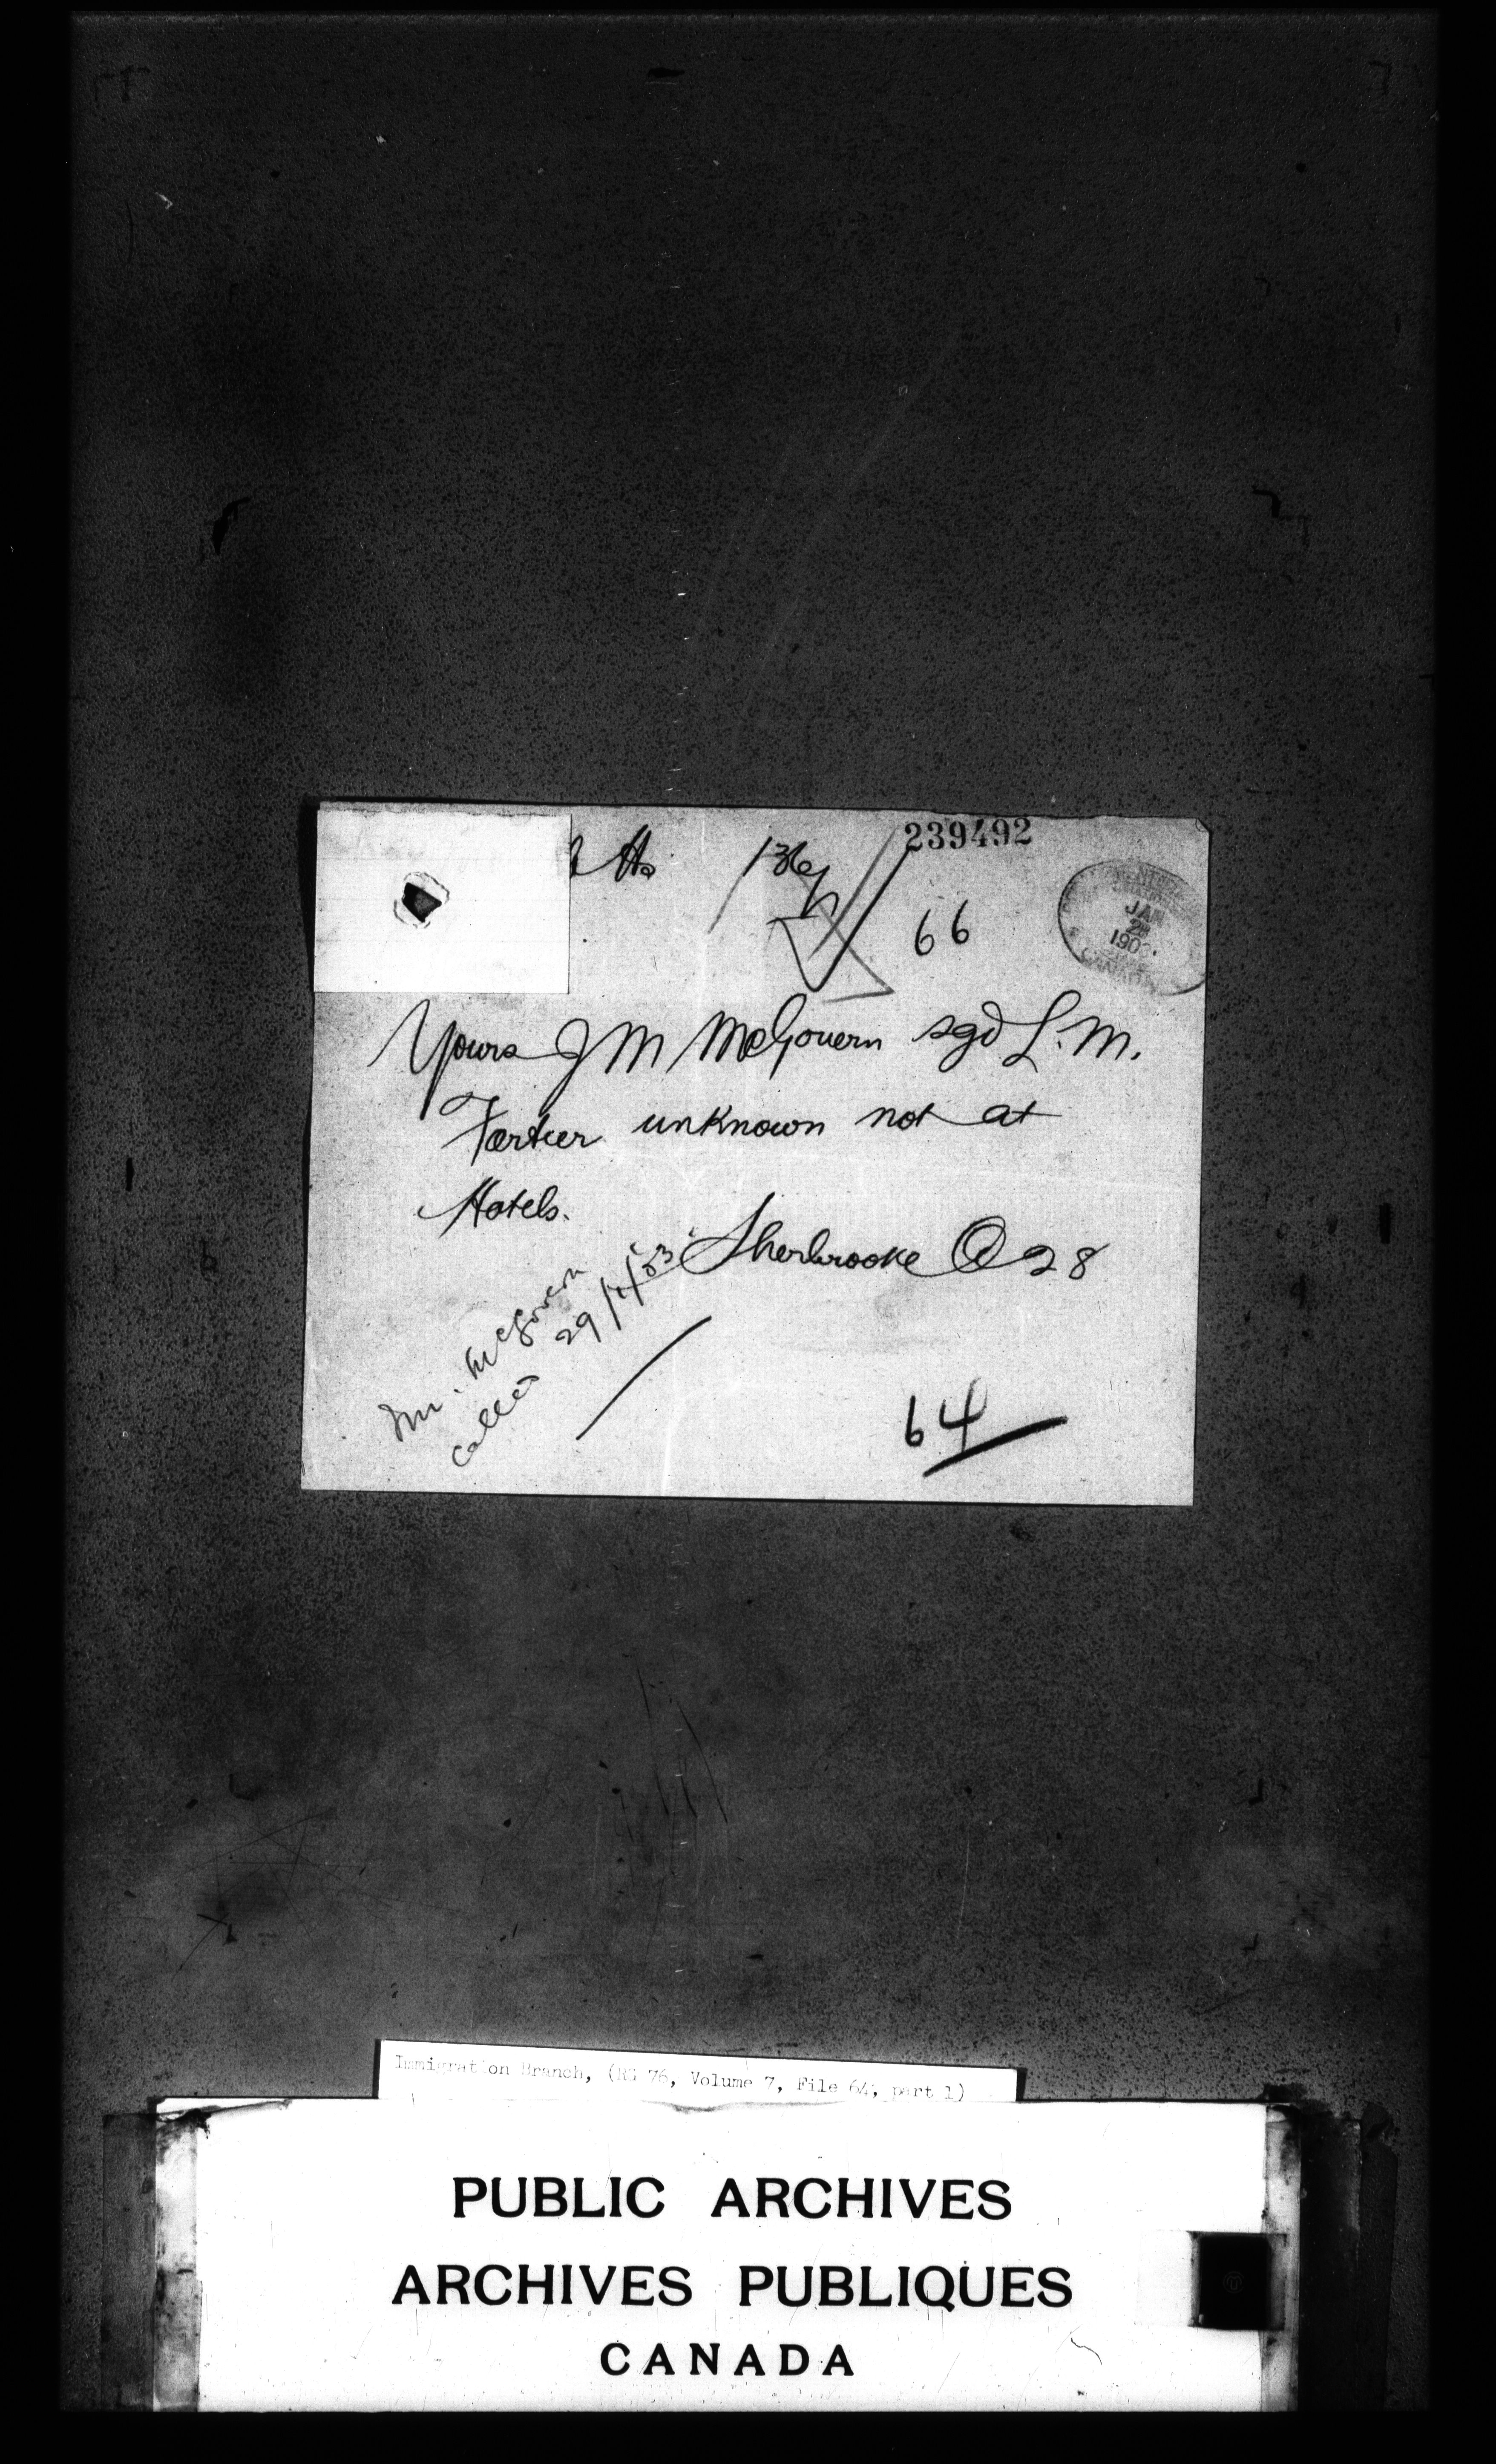 239492
66
JAN
28
190
CANADA
Yours J M McGovern sgd L. M.
Fortier unknown not at
Hotels.
Sherbrooke Q 28
Mr. McGovern
called 29/1/03
64
Immigration Branch, (RG 76, Volume 7, File 64, part 1)
PUBLIC ARCHIVES
ARCHIVES PUBLIQUES
CANADA